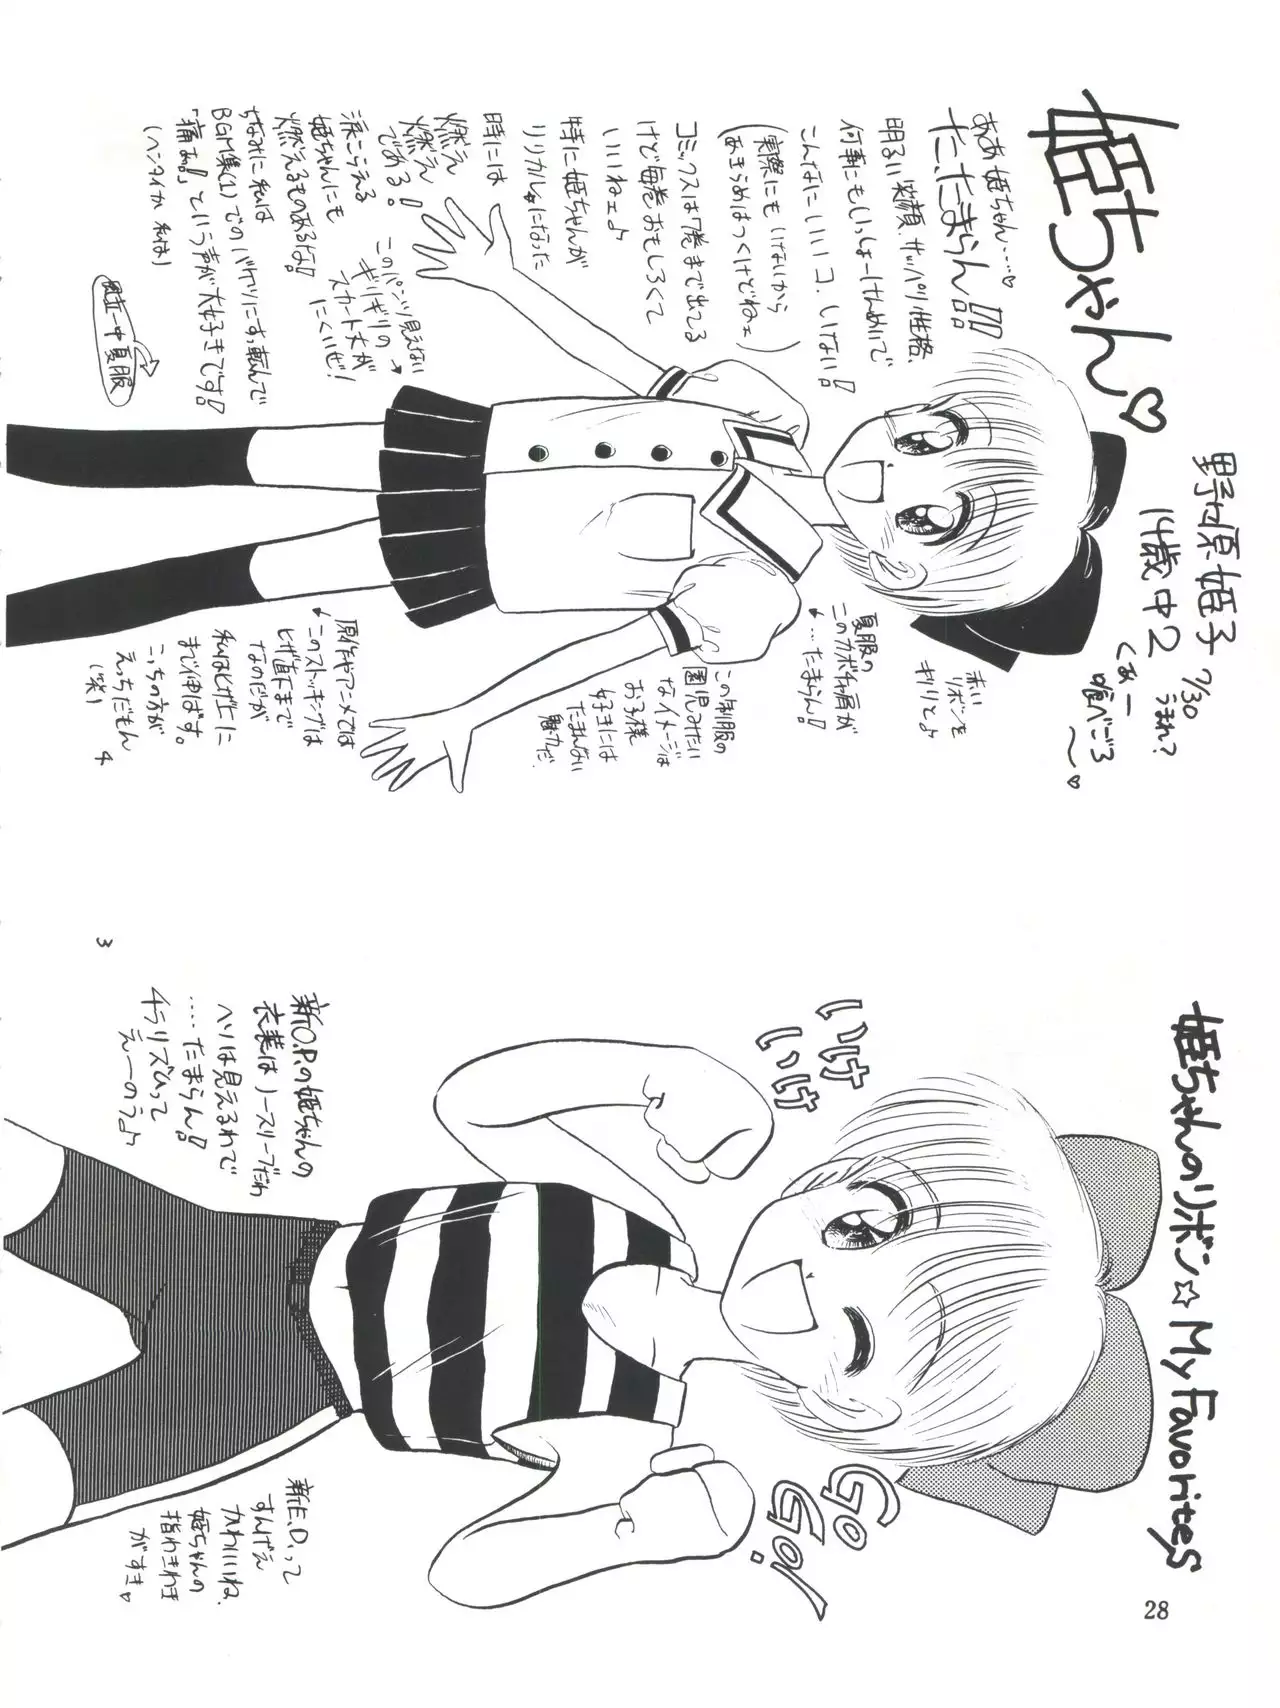 姫ちゃん♡
野々原姫子 7/30 うまれ?
14歳中2
くあー
喰べごろ〜♡
ああ姫ちゃん…♡
た、たまらん!!!
明るい笑顔、サッパリ性格、
何事にもいっしょーけんめいで
こんなにいいコ、いない!
(実際にもいないから
あきらめはつくけどねェ)
コミックスは7巻まで出てる
けど毎巻おもしろくて
いいねェよ
特に姫ちゃんが
リリカルになった
時には
燃え
燃え
である!
涙こらえる
姫ちゃんにも
燃えるものあるな!
ちなみに私は
BGM集(1)でのバケツにすっ転んで
「痛あ!」という声が大好きです!
(ヘンタイか私は)
このパンツ見えない
ギリギリの
スカート丈が
にくいぜ!
風立一中夏服
赤い
リボンを
キリリとよ
夏服の
このカボチャ肩が
…たまらん!
この制服の
園児みたい
なイメージは
お子様
好きには
たまんない
魅力だ
原作やアニメでは
このストッキングは
ヒザ直下まで
なのだが
私はヒザ上に
まで伸ばす。
こっちの方が
えっちだもん
(笑)
4
姫ちゃんのリボン☆My Favorites
いけ
いけ
Go
Go!
新O.P.の姫ちゃんの
衣装はノースリーブだわ
ヘソは見えるわで
……たまらん!
チラリズムって
えーのうよ
新E.D.って
すんげえ
かわいいね、
姫ちゃんの
指わきわき
がすき♡
3
28